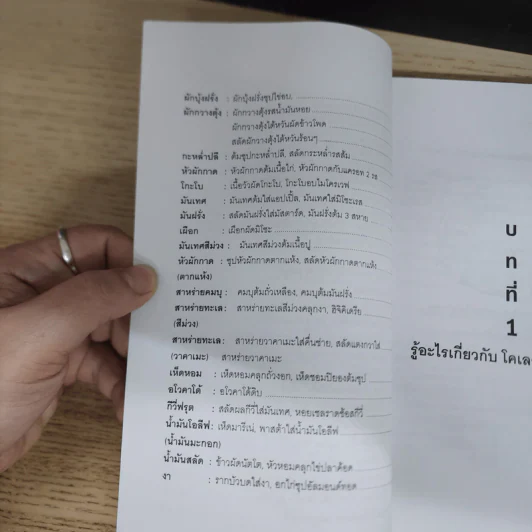 ผักบุ้งฝรั่ง : ผักบุ้งฝรั่งซุปไข่อบ
ผักกวางตุ้ง : ผักกวางตุ้งรสน้ำมันหอย
ผักกวางตุ้งไต้หวันผัดข้าวโพด
สลัดผักกวางตุ้งไต้หวันร้อนๆ
กะหล่ำปลี : ต้มซุปกะหล่ำปลี, สลัดกระหล่ำรสส้ม
หัวผักกาด : หัวผักกาดต้มเนื้อไก่, หัวผักกาดกับแครอท 2 รส
โกะโบ : เนื้อวัวผัดโกะโบ, โกะโบอบไมโครเวฟ
มันเทศ : มันเทศต้มใส่แอปเปิ้ล, มันเทศใส่มิโซะเรส
มันฝรั่ง : สลัดมันฝรั่งใส่มัสตาร์ด, มันฝรั่งต้ม 3 สหาย
เผือก : เผือกผัดมิโซะ
มันเทศสีม่วง : มันเทศสีม่วงต้มเนื้อปู
หัวผักกาด : ซุปหัวผักกาดตากแห้ง, สลัดหัวผักกาดตากแห้ง
(ตากแห้ง)
สาหร่ายคมบุ : คมบุต้มถั่วเหลือง, คมบุต้มมันฝรั่ง
สาหร่ายทะเล : สาหร่ายทะเลสีม่วงคลุกงา, ฮิจิคิเดรีย
(สีม่วง)
สาหร่ายทะเล : สาหร่ายวาคาเมะใส่คื่นช่าย, สลัดแตงกวาใส่
(วาคาเมะ) สาหร่ายวาคาเมะ
เห็ดหอม : เห็ดหอมคลุกถั่วงอก, เห็ดชอมปิยองต้มซุป
อโวคาโด้ : อโวคาโด้ดิบ
กีวี่ฟรุต : สลัดผลกีวี่ใส่มันเทศ, หอยเชลราดซ้อสกีวี่
น้ำมันโอลีฟ : เห็ดมารีเน่, พาสต้าใส่น้ำมันโอลีฟ
(น้ำมันมะกอก)
น้ำมันสลัด : ข้าวผัดนัตโต, หัวหอมคลุกไข่ปลาค้อด
งา : รากบัวบดใส่งา, อกไก่ชุปอัลมอนด์ทอด
บ
ท
ที่
1
รู้อะไรเกี่ยวกับ โคเล